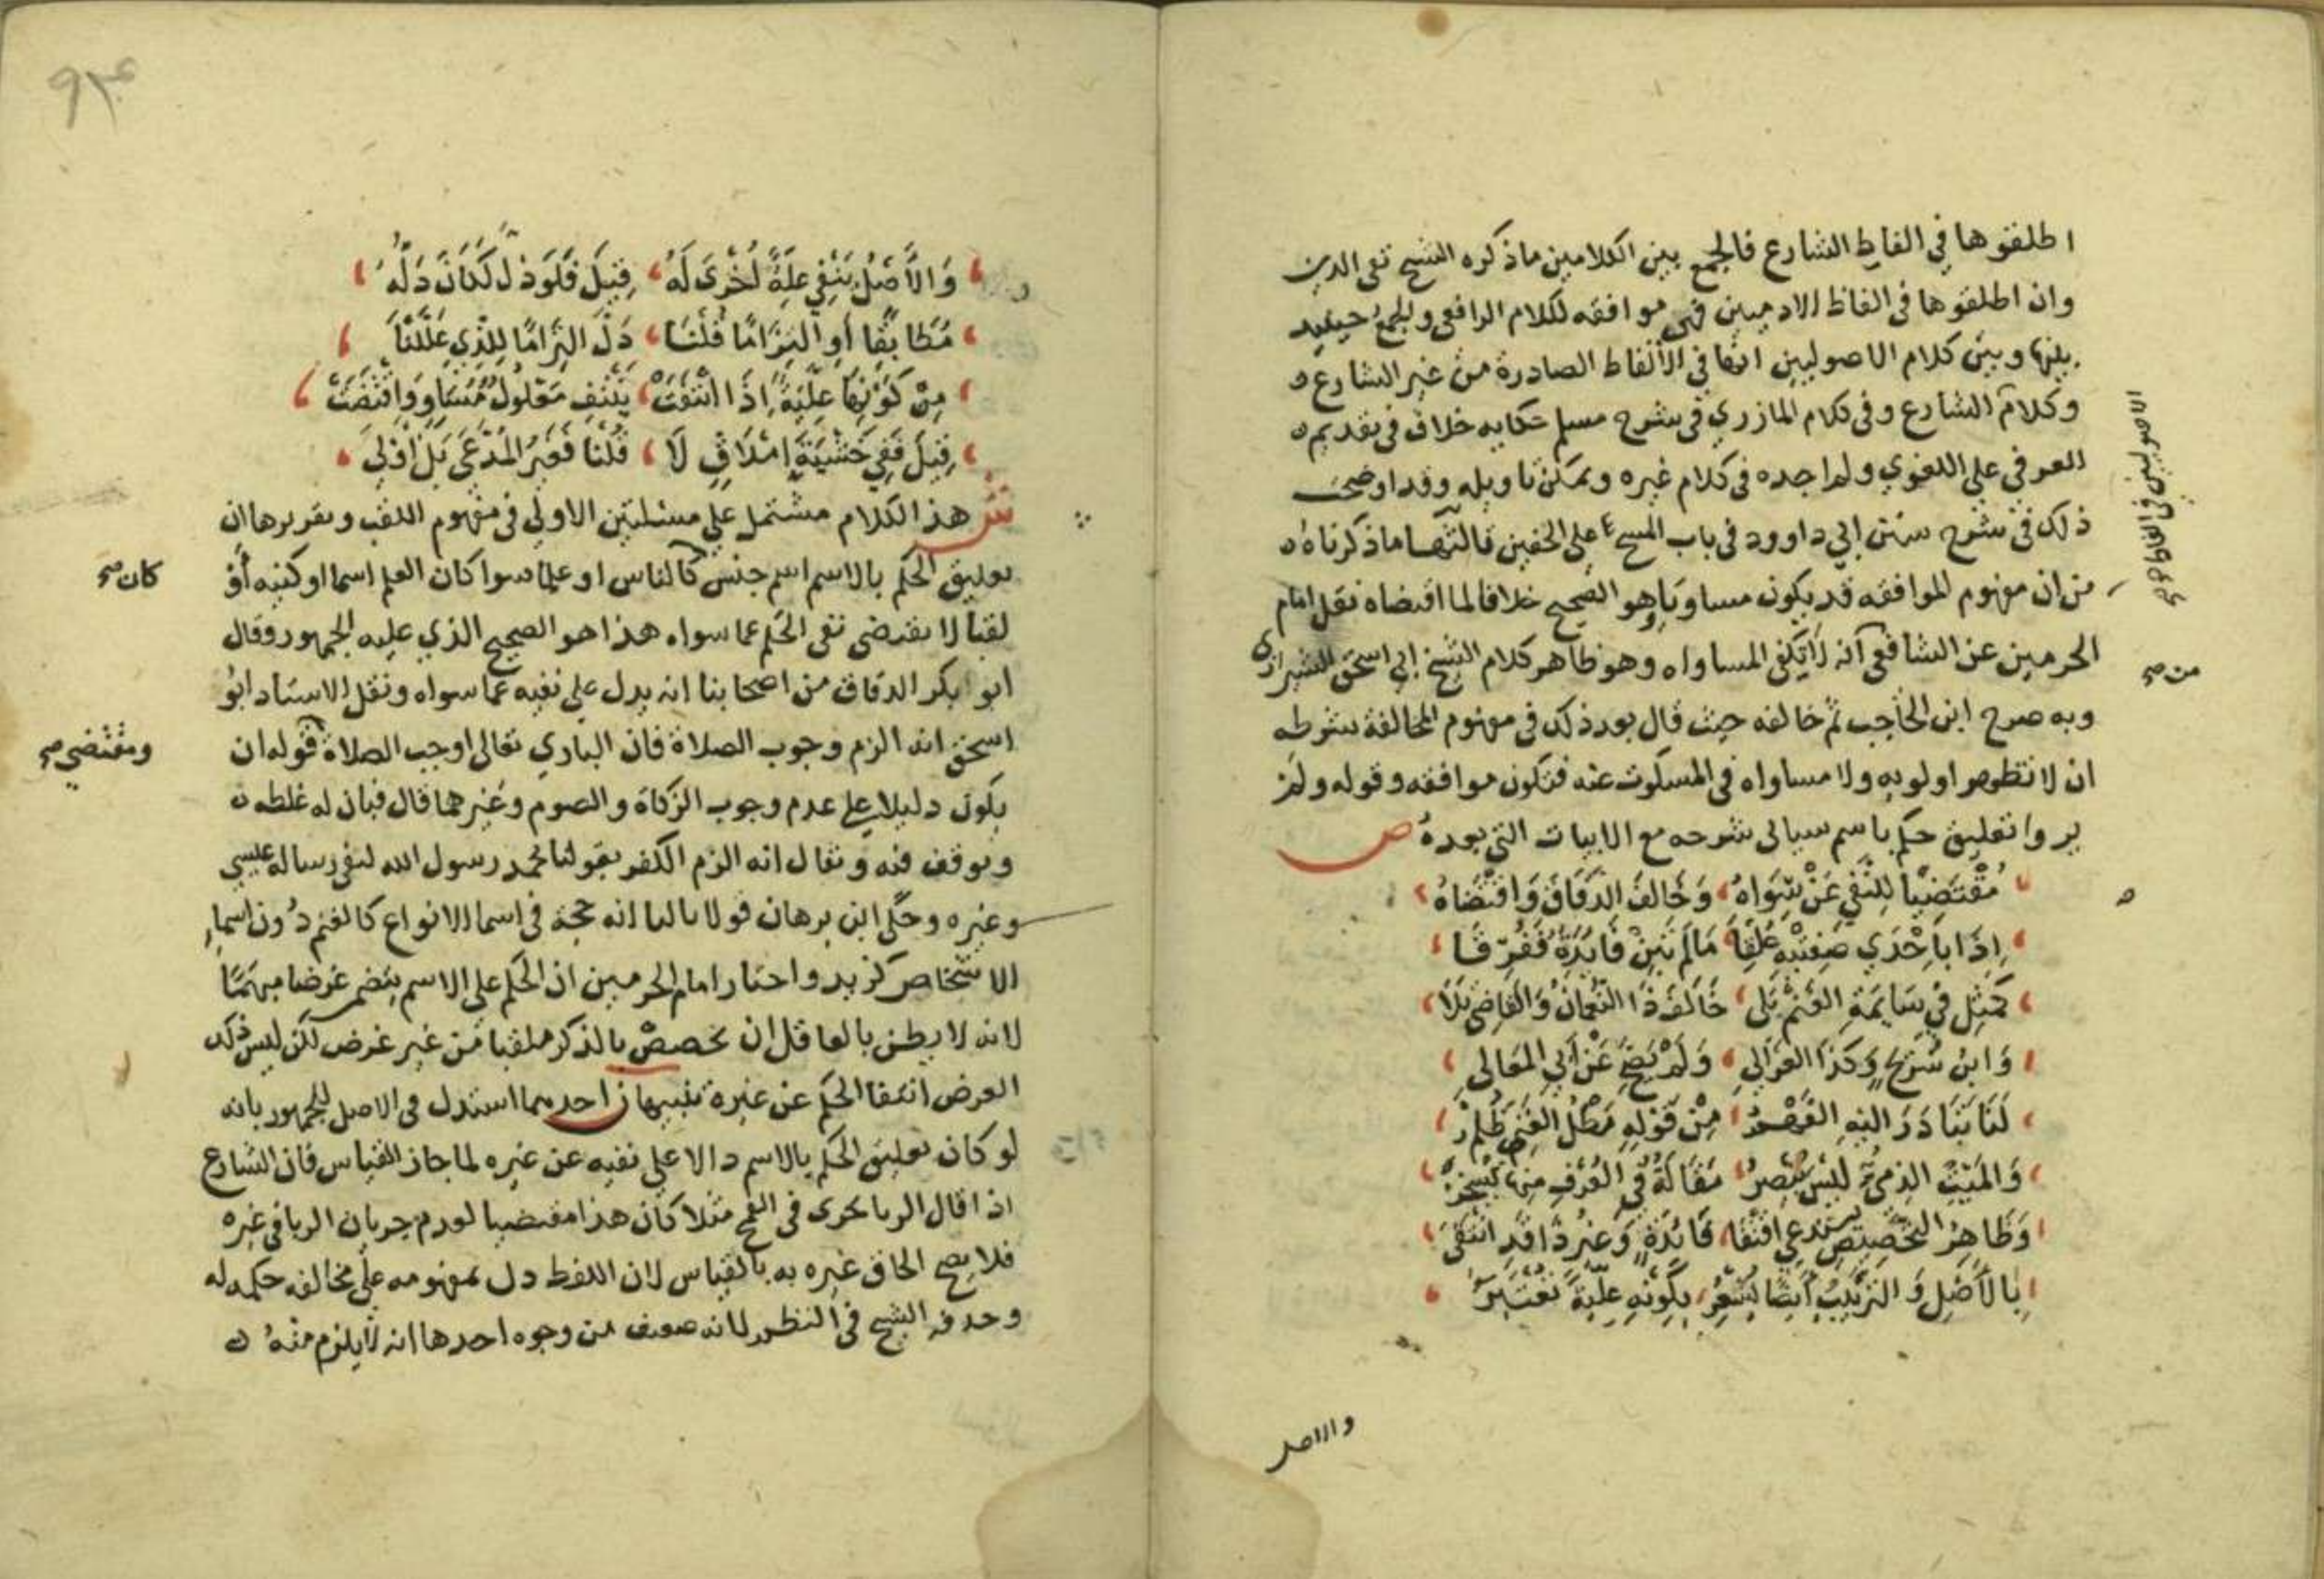 اطلقوها في الفاظ الشارع فالجمع بين الكلامين ماذكره الشيخ تقى الدين
وان اطلقوها فى الفاظ الادميين فهى موافقه لكلام الرافعى والجمع حينيد
بينها وبين كلام الاصوليين انها فى الألفاظ الصادرة من غير الشارع
وكلام الشارع وفى كلام المازري فى شرح مسلم حكايه خلاف فى تقديم
العرفي على اللغوي ولم اجده فى كلام غيره ويمكن تاويله وقد اوضحت
ذلك فى شرح سنن ابي داوود فى باب المسح على الخفين ماذكرناه
من ان مفهوم الموافقه قد يكون مساويا وهو الصحيح خلافا لما اقتضاه نقل امام
الحرمين عن الشافعى انه لا يكفى المساواه وهو ظاهر كلام الشيخ ابي اسحق الشيرازى
وبه صرح ابن الحاجب ثم خالفه حيث قال بعد ذلك فى مفهوم المخالفة شرطه
ان لا تظهر اولويه ولا مساواه فى المسكوت عنه فتكون موافقه وقوله ولم
يروا تعليق حكم باسم سياتى شرحه مع الابيات التي بعده ص
مُقْتَضِيًا لِلنَّفْيِ عَنْ سِوَاهُ وَخَالفَ الدَّقَاقَ وَاقْتَضَاهُ
اِذَا بِاِحْدَي صِفَتَيْه عُلِّقَا مَالَمْ تَبِنْ فَايدَةٌ فَفُرِّقَا
كَمِثْلِ فِي سَايمَةِ الغَنَم بَلى خَالَفَ ذَا النُّعْمَانُ وَالقَاضِي بَلَا
وَابنُ سُرَيْجٍ وَكَذَا الغَزَالِي وَلَمْ يَضِحْ عَنْ اَبِي المعَالِي
لَنَا تَبَادَرَ اليهِ الفَهْمُ مِنْ قَوْلِهِ مَطْلُ الغَنِي ظُلْمُ
وَالمَيِّتُ الذِمِّيُّ لَيْسَ يُبْصِرُ مَقَالَةٌ فِي العُرْفِ مِنهَا يُسْخَرُ
وَظَاهِرُ التَخْصِيصِ يَسْتَدعِي اقْتِفَا فَائدَةٍ وَغَيْرُ ذَا قَدِ انْتَفَى
بِالأَصْلِ وَالتَّرْتِيْبُ اَيضًا يُشْعِرُ بِكَوْنِهِ عِلِيَّةً تُعْتَبَرُ
والاصل
من صح
وَالأَصْلُ يَنْفِي عِلَّةً اُخْرَى لَهُ قِيلَ فَلَو دَلَّ لَكَانَ دَلَّهُ
مُطَابَقًا اَو التِزَامًا قُلْنَا دَلَّ التِزَامًا لِلَّذِي عَلَّلْنَا
مِنْ كَوْنِهَا عِلِيَّةً اِذَا انْتَفَتْ يَنْتَفِ مَعْلُولٌ مُسَاوٍ وَاقْتَضَتْ
قِيلَ فَفِي خَشْيَةَ اِمْلَاقٍ لَا قُلْنَا فَغَيْرُ المُدَّعَى بَلْ اَوْلِي
ش هذا الكلام مشتمل علي مسئلتين الاولي فى مفهوم اللقب وتقريرها ان
تعليق الحكم بالاسم اسم جنس كالناس او علما سوا كان العلم اسما او كنيه أو
كان صح
لقبا لا يقتضى نفى الحكم عما سواه هذا هو الصحيح الذي عليه الجمهور وقال
ابو بكر الدقاق من اصحابنا انه يدل على نفيه عما سواه ونقل الاستاد ابُو
اسحق انه الزم وجوب الصلاة فان الباري تعالى اوجب الصلاة قوله ان
ومُقْتَضِي صح
يكون دليلا على عدم وجوب الزكاة والصوم وغيرهما قال فبان له غلطه
وتوقف فيه ويقال انه الزم الكفر بقولنا محمد رسول الله لنفى رساله عيسي
وغيره وحكى ابن برهان قولا ثالثا انه حجة فى اسما الانواع كالغنم دون اسما
الاشخاص كزيد واختار امام الحرمين ان الحكم على الاسم يتضمن غرضا مبهمًا
لانه لا يظن بالعاقل ان يخصص بالذكر ملقبا من غير غرض لكن ليس ذلك
الغرض انتفا الحكم عن غيره تنبيهان احدهما استدل فى الاصل للجمهور بانه
لو كان تعليق الحكم بالاسم دالا على نفيه عن غيره لما جاز القياس فان الشارع
اذا قال الربا يجرى فى القمح مثلا كان هذا مقتضيا لعدم جريان الربا فى غيره
فلا يصح الحاق غيره به بالقياس لان اللفظ دل بمفهومه على مخالفه حكمه له
وحذفه الشيخ فى النظم لانه ضعيف من وجوه احدها انه لا يلزم منهُ